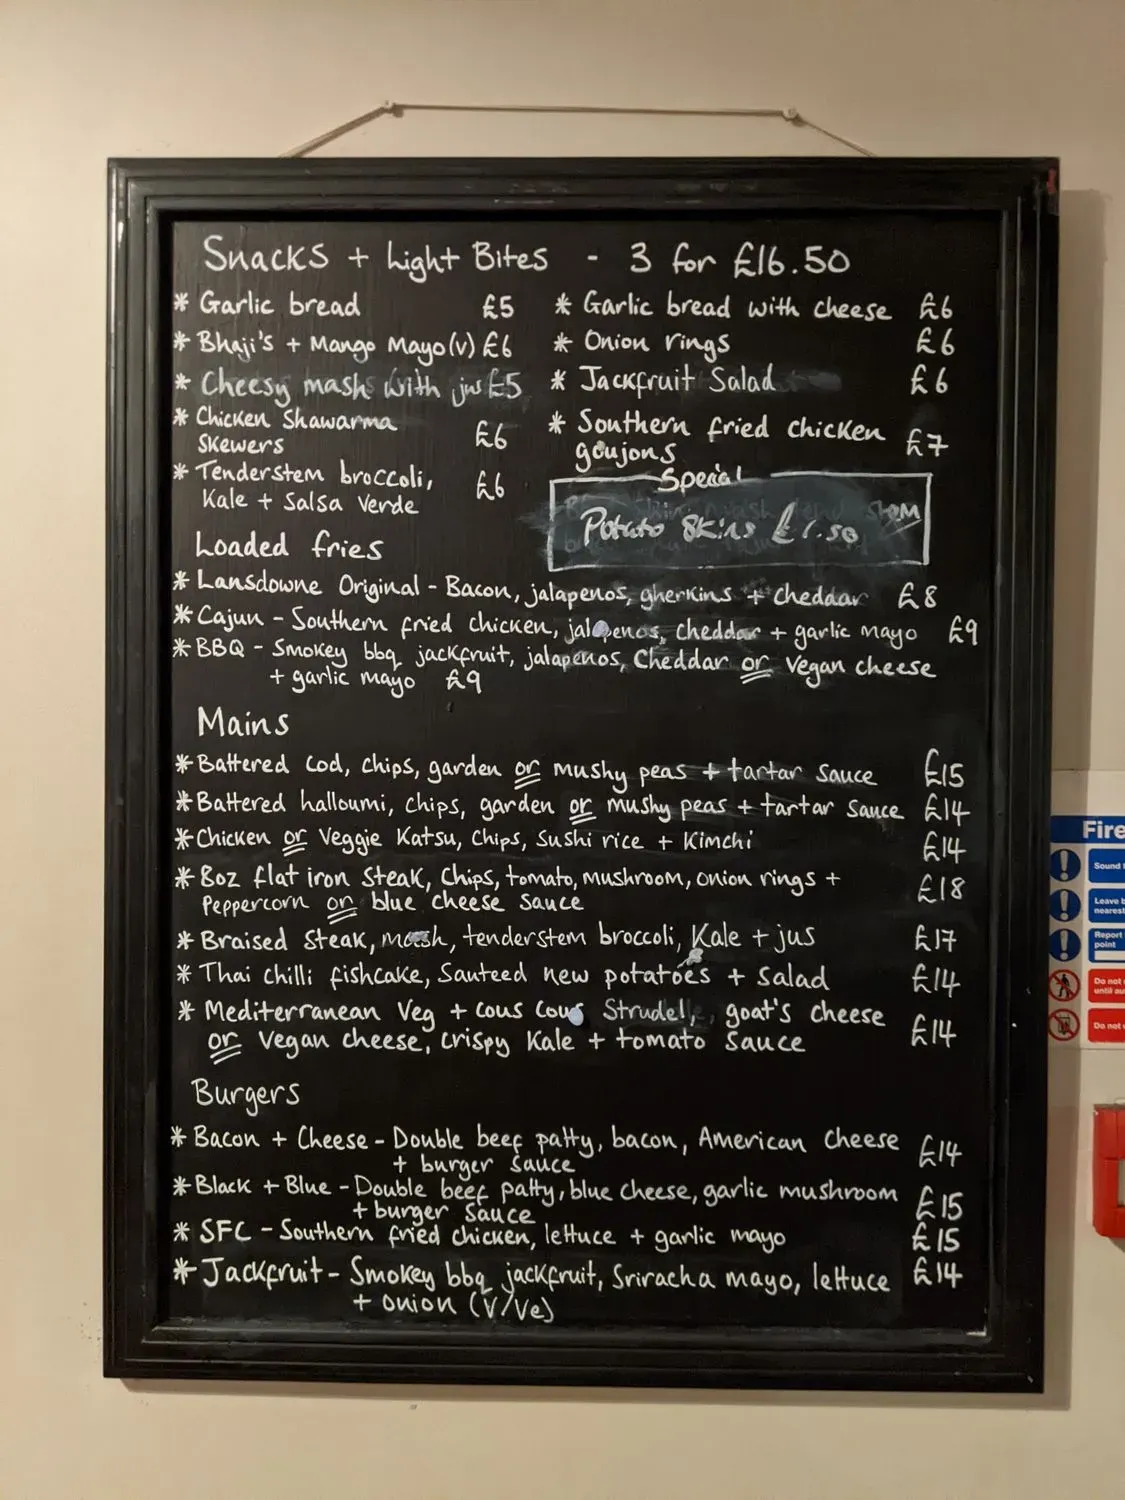 Snacks + Light Bites - 3 for £16.50
* Garlic bread £5
* Bhaji's + Mango Mayo (v) £6
* Cheesy mash with jus £5
* Chicken Shawarma
Skewers £6
* Tenderstem broccoli,
Kale + Salsa Verde £6
* Garlic bread with cheese £6
* Onion rings £6
* Jackfruit Salad £6
* Southern fried chicken
goujons £7
Special
Potato Skins
Loaded fries
* Lansdowne Original - Bacon, jalapenos, gherkins + Cheddar £8
* Cajun - Southern fried chicken, jalapenos, Cheddar + garlic mayo £9
* BBQ - Smokey bbq jackfruit, jalapenos, Cheddar or Vegan cheese
+ garlic mayo £9
Mains
* Battered Cod, Chips, garden or mushy peas + tartar sauce £15
* Battered halloumi, Chips, garden or mushy peas + tartar sauce £14
* Chicken or Veggie Katsu, Chips, Sushi rice + Kimchi £14
* 8oz flat iron Steak, Chips, tomato, mushroom, onion rings +
Peppercorn or blue cheese sauce £18
* Braised Steak, mash, tenderstem broccoli, Kale + jus £17
* Thai chilli fishcake, Sauteed new potatoes + Salad £14
* Mediterranean Veg + cous cous Strudel, goat's cheese
or Vegan cheese, crispy Kale + tomato Sauce £14
Burgers
* Bacon + Cheese - Double beef patty, bacon, American Cheese
+ burger sauce £14
* Black + Blue - Double beef patty, blue cheese, garlic mushroom
+ burger sauce £15
* SFC - Southern fried chicken, lettuce + garlic mayo £15
* Jackfruit - Smokey bbq jackfruit, Sriracha mayo, lettuce £14
+ onion (V/Ve)
Fire
Sound
Leave
nearest
Report
point
Do not
until
Do not